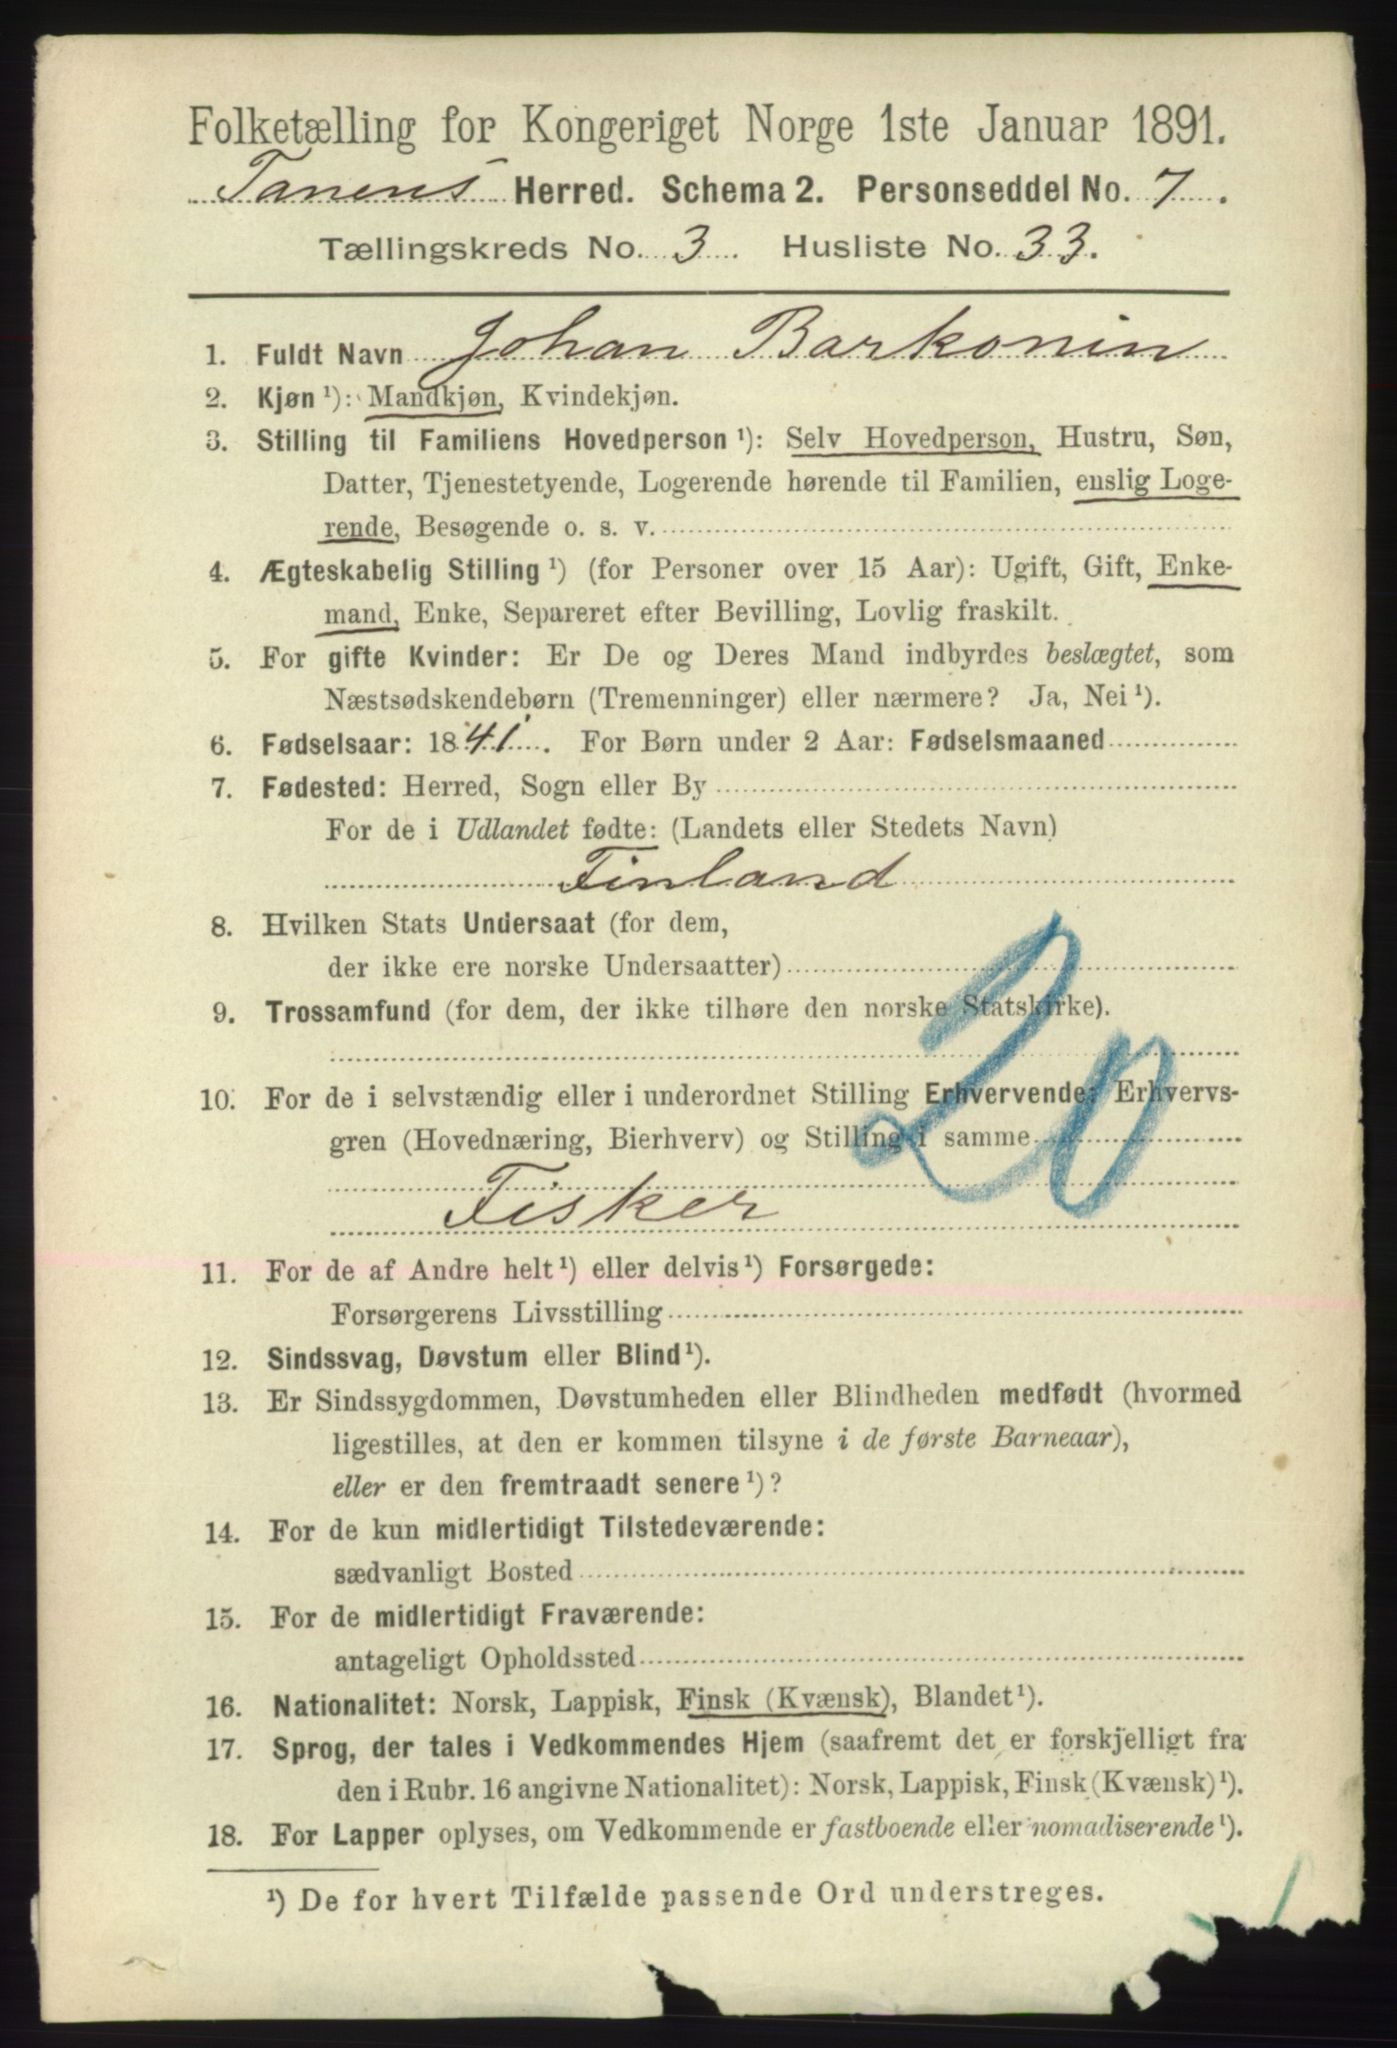 Folketælling for Kongeriget Norge 1ste Januar 1891.
Tanens Herred. Schema 2. Personseddel No. 7.
Tællingskreds No. 3. Husliste No. 33.
1. Fuldt Navn Johan Barkonin
2. Kjøn ¹): Mandkjøn, Kvindekjøn.
3. Stilling til Familiens Hovedperson ¹): Selv Hovedperson, Hustru, Søn,
Datter, Tjenestetyende, Logerende hørende til Familien, enslig Loge-
rende, Besøgende o. s. v.
4. Ægteskabelig Stilling ¹) (for Personer over 15 Aar): Ugift, Gift, Enke-
mand, Enke, Separeret efter Bevilling, Lovlig fraskilt.
5. For gifte Kvinder: Er De og Deres Mand indbyrdes beslægtet, som
Næstsødskendebørn (Tremenninger) eller nærmere? Ja, Nei ¹).
6. Fødselsaar: 1841. For Børn under 2 Aar: Fødselsmaaned
7. Fødested: Herred, Sogn eller By
For de i Udlandet fødte: (Landets eller Stedets Navn)
Finland
8. Hvilken Stats Undersaat (for dem,
der ikke ere norske Undersaatter)
9. Trossamfund (for dem, der ikke tilhøre den norske Statskirke).
20
10. For de i selvstændig eller i underordnet Stilling Erhvervende: Erhvervs-
gren (Hovednæring, Bierhverv) og Stilling i samme
Fisker
11. For de af Andre helt ¹) eller delvis ¹) Forsørgede:
Forsørgerens Livsstilling
12. Sindssvag, Døvstum eller Blind ¹).
13. Er Sindssygdommen, Døvstumheden eller Blindheden medfødt (hvormed
ligestilles, at den er kommen tilsyne i de første Barneaar),
eller er den fremtraadt senere ¹)?
14. For de kun midlertidigt Tilstedeværende:
sædvanligt Bosted
15. For de midlertidigt Fraværende:
antageligt Opholdssted
16. Nationalitet: Norsk, Lappisk, Finsk (Kvænsk), Blandet ¹).
17. Sprog, der tales i Vedkommendes Hjem (saafremt det er forskjelligt fra
den i Rubr. 16 angivne Nationalitet): Norsk, Lappisk, Finsk (Kvænsk) ¹).
18. For Lapper oplyses, om Vedkommende er fastboende eller nomadiserende ¹).
¹) De for hvert Tilfælde passende Ord understreges.